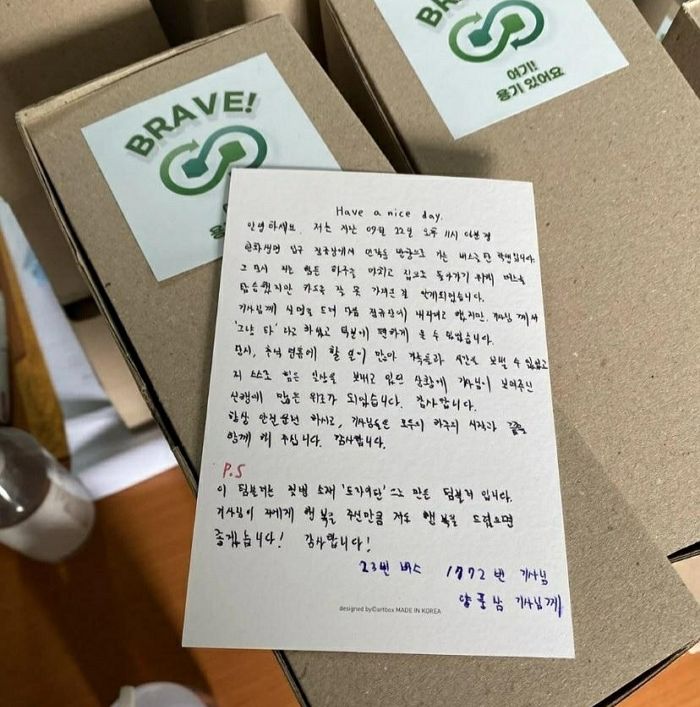 BRAVE!
BRAVE!
여기!
용기 있어요
Have a nice day.
안녕하세요. 저는 지난 09월 22일 오후 11시 16분 경
한화생명 입구 정류장에서 만덕동 방향으로 가는 버스를 탄 학생입니다.
그 당시 저는 힘든 하루를 마치고 집으로 돌아가기 위해 버스를
탑승했지만 카드를 잘 못 가져온 걸 알게되었습니다.
기사님께 설명을 드려 다음 정류장에 내리려고 했지만, 기사님께서
'그냥 타' 라고 하셨고 덕분에 편하게 올 수 있었습니다.
당시, 추석 연휴에 할 일이 많아 가족들과 시간을 보낼 수 없었고
저 스스로 힘든 일상을 보내고 있던 상황에 기사님이 보여주신
선행에 많은 위로가 되었습니다. 감사합니다.
항상 안전운전 하시고, 기사님들은 모두의 하루의 시작과 끝을
함께 해 주십니다. 감사합니다.
P.S
이 텀블러는 젖병 소재 '트라이탄' 으로 만든 텀블러 입니다.
기사님이 저에게 행복을 주신만큼 저도 행복을 드렸으면
좋겠습니다! 감사합니다!
23번 버스 1772번 기사님
기사님께
designed by©artbox MADE IN KOREA